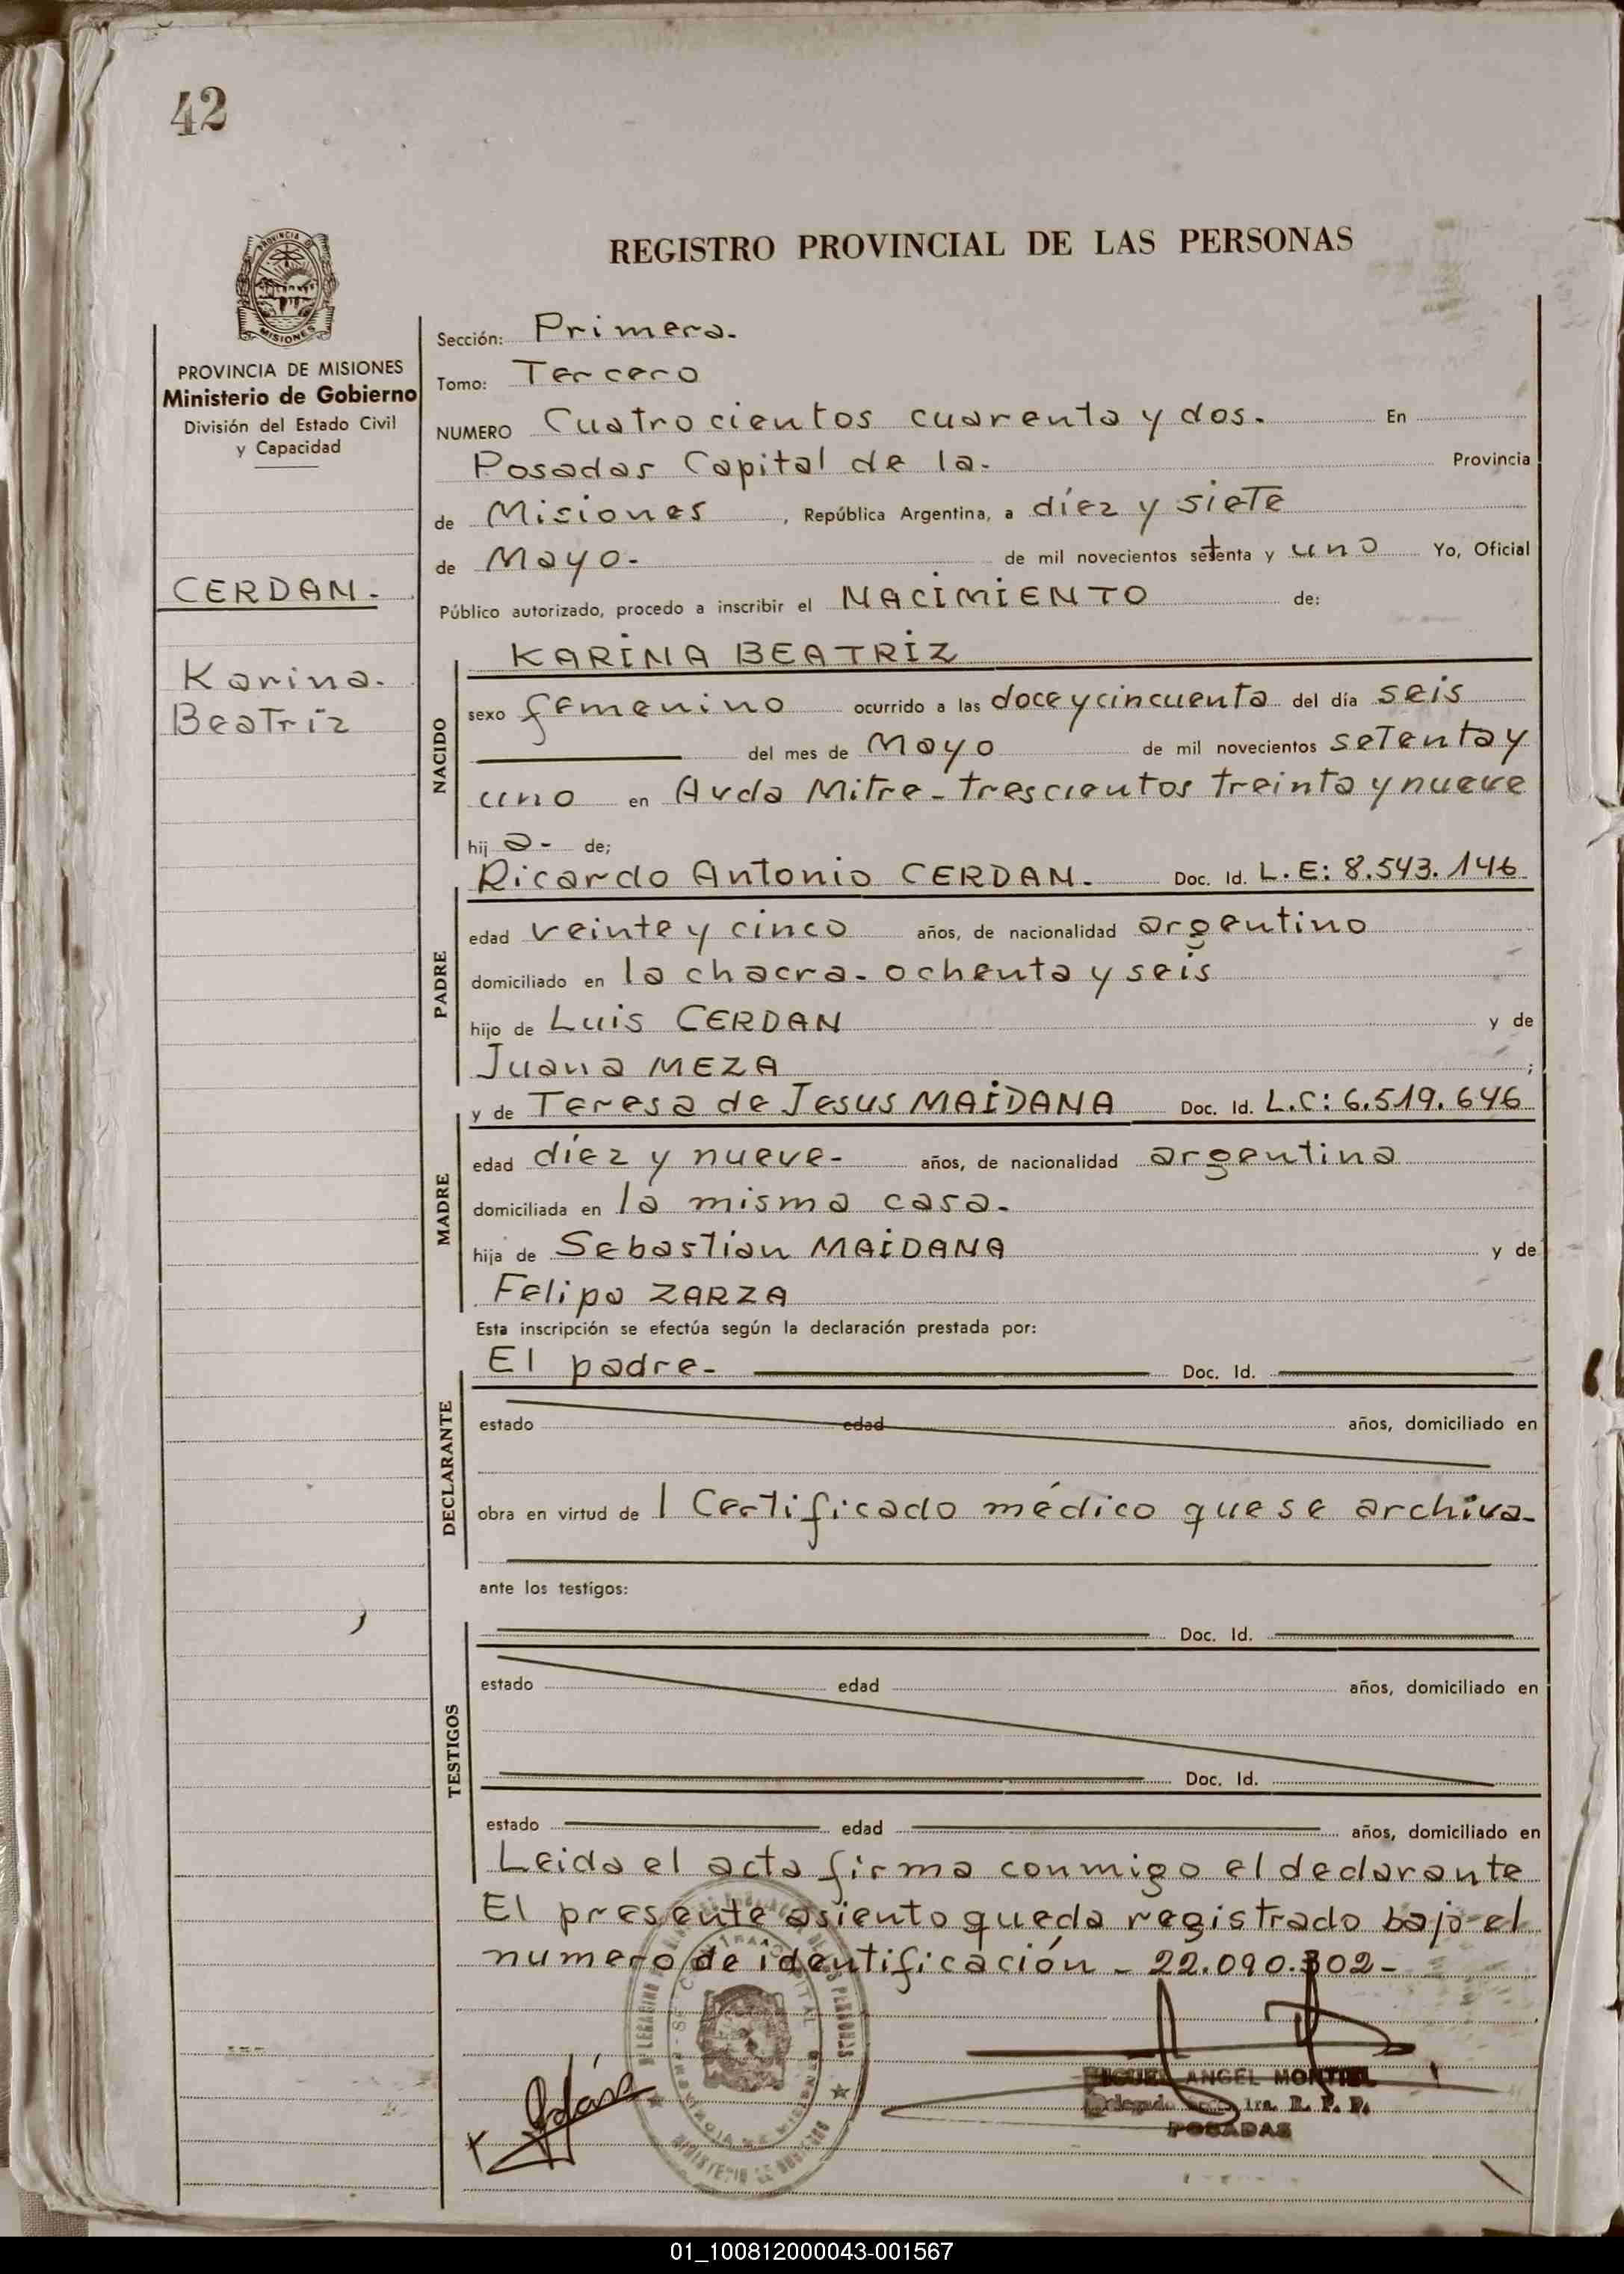 42
REGISTRO PROVINCIAL DE LAS PERSONAS
PROVINCIA DE MISIONES
Ministerio de Gobierno
División del Estado Civil
y Capacidad
CERDAN.
Karina.
Beatriz
Sección: Primera.
Tomo: Tercero
NUMERO Cuatrocientos cuarenta y dos. En
Posadas Capital de la. Provincia
de Misiones, República Argentina, a díez y siete
de Mayo. de mil novecientos setenta y uno Yo, Oficial
Público autorizado, procedo a inscribir el NACIMIENTO de:
NACIDO
KARINA BEATRIZ
sexo femenino ocurrido a las doce y cincuenta del día seis
del mes de Mayo de mil novecientos setenta y
uno en Avda Mitre - trescientos treinta y nueve
hij a- de;
PADRE
Ricardo Antonio CERDAN. Doc. Id. L.E: 8.543.146
edad veinte y cinco años, de nacionalidad argentino
domiciliado en la chacra - ochenta y seis
hijo de Luis CERDAN y de
Juana MEZA ;
MADRE
y de Teresa de Jesus MAIDANA Doc. Id. L.C: 6.519.646
edad díez y nueve- años, de nacionalidad argentina
domiciliada en la misma casa.
hija de Sebastian MAIDANA y de
Felipa ZARZA
Esta inscripción se efectúa según la declaración prestada por:
DECLARANTE
El padre- Doc. Id.
estado edad años, domiciliado en
obra en virtud de 1 Certificado médico que se archiva-
ante los testigos:
TESTIGOS
Doc. Id.
estado edad años, domiciliado en
Doc. Id.
estado edad años, domiciliado en
Leida el acta firma conmigo el declarante
El presente asiento queda registrado bajo el
numero de identificación - 22.090.302-
MIGUEL ANGEL MONTIEL
1ra. R. P. P.
POSADAS
01_100812000043-001567